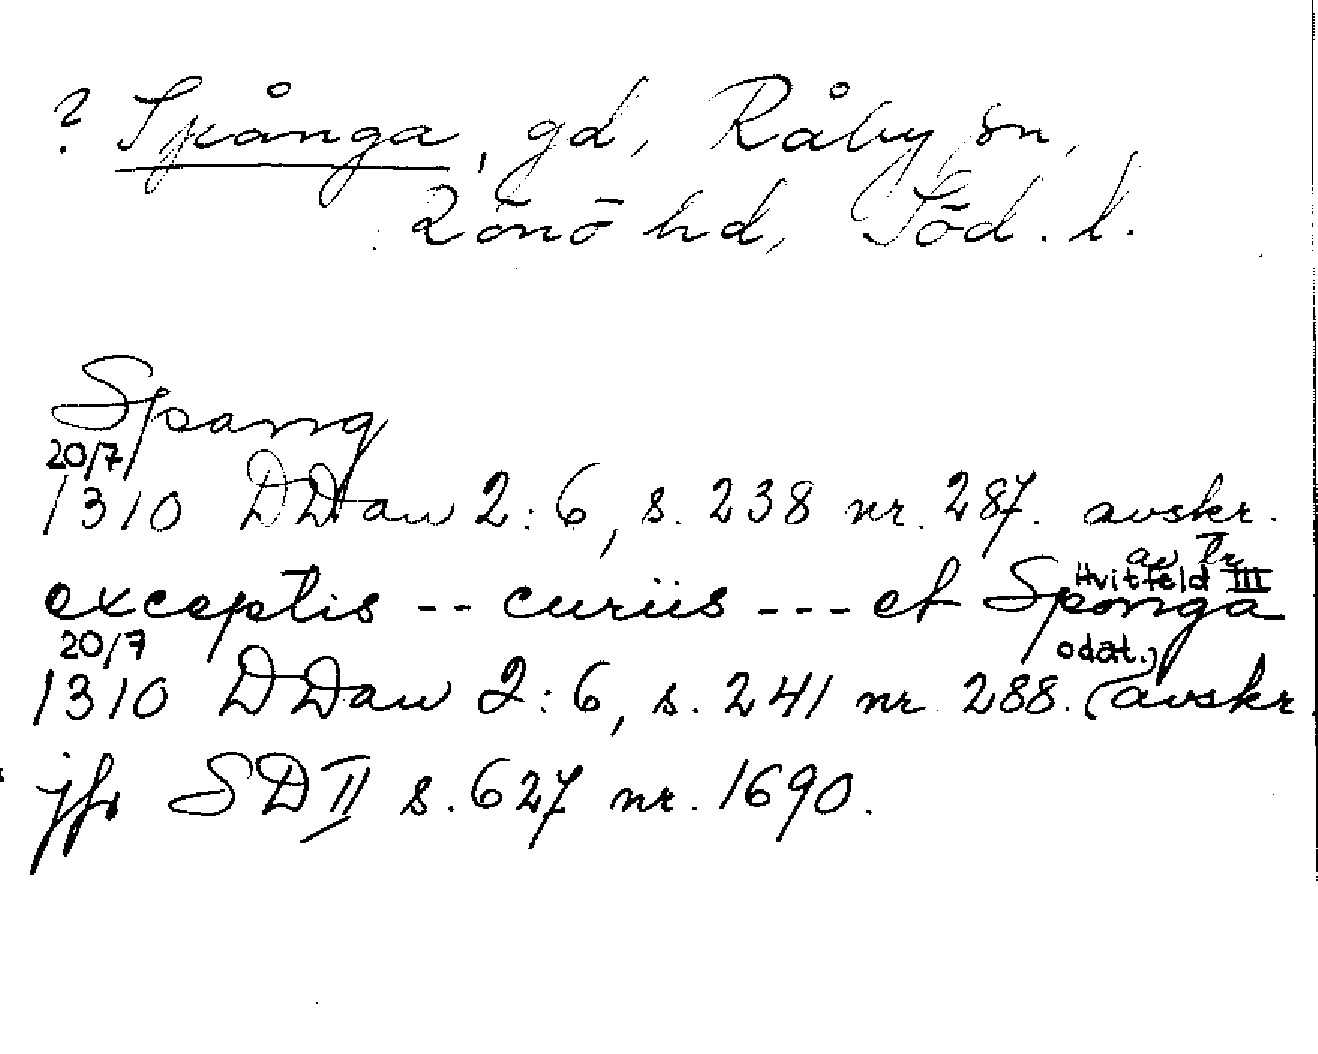 ? Spånga, gd, Råby sn,
Rönö hd, Söd. l.
Spang
20/7
1310 DDaw 2:6, s. 238 nr. 287. avskr.
av Tr
Hvitfeld III
exceptis -- curiis --- et Sponga
20/7
odat.,
1310 DDaw 2:6, s. 241 nr 288. (avskr.
jfr SD II s. 627 nr. 1690.